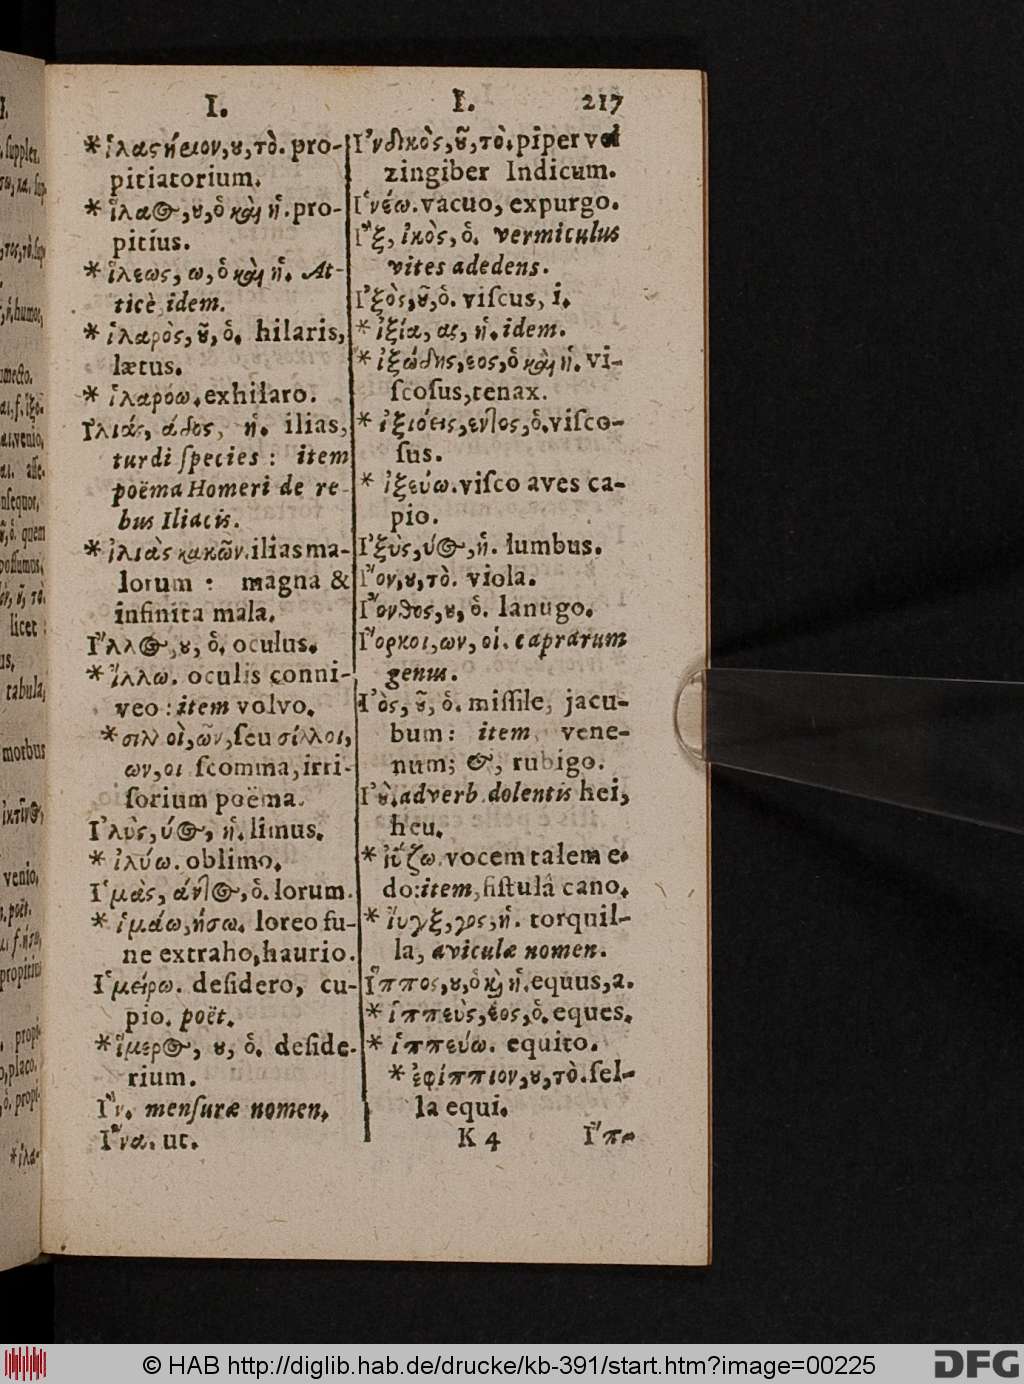 I. I. 217
* ἱλαςήειον, ου, τὸ. pro-
pitiatorium.
* ἵλαος, ου, ὁ καὶ ἡ. pro-
pitíus.
* ἵλεως, ω, ὁ καὶ ἡ. At-
ticè idem.
* ἱλαρὸς, οῦ, ὁ. hilaris,
lætus.
* ἱλαρόω. exhilaro.
Ιλιάς, άδος, ἡ. ilias,
turdi ſpecies : item
poëma Homeri de re-
bus Iliacis.
* ἰλιὰς κακῶν. ilias ma-
lorum : magna &
infinita mala.
Ἴλλος, ου, ὁ. oculus.
* ἴλλω. oculis conni-
veo : item volvo.
* σιλλοὶ, ῶν, ſeu σίλλοι,
ων, οι ſcomma, irri-
ſorium poëma.
Ἰλὺς, ύος, ἡ. limus.
* ἰλύω. oblimo.
Ἱμὰς, άντος, ὁ. lorum.
* ἱμάω, ήσω. loreo fu-
ne extraho, haurio.
Ἱμείρω. deſidero, cu-
pio. poët.
* ἵμερος, ου, ὁ. deſide-
rium.
Ἲν. menſuræ nomen.
Ἵνα. ut.
Ἰνδικὸς, οῦ, τὸ. piper vel
zingiber Indicum.
Ἰνέω. vacuo, expurgo.
Ἴξ, ἰκὸς, ὁ. vermiculus
vites adedens.
Ἰξὸς, οῦ, ὁ. viſcus, i.
* ἰξία, ας, ἡ. idem.
* ἰξώδης, εος, ὁ καὶ ἡ. vi-
ſcoſus, tenax.
* ἰξιόεις, εντος, ὁ. viſco-
ſus.
* ἰξεύω. viſco aves ca-
pio.
Ἰξὺς, ύος, ἡ. lumbus.
Ἴον, ου, τὸ. viola.
Ἴονθος, ου, ὁ. lanugo.
Ἴορκοι, ων, οἱ. caprarum
genus.
Ἰὸς, οῦ, ὁ. miſſile, jacu-
bum: item vene-
num; &, rubigo.
Ἰοὺ. adverb. dolentis hei,
heu.
* ἰΰζω. vocem talem e-
do: item, fiſtulâ cano.
* ἴυγξ, γος, ἡ. torquil-
la, aviculæ nomen.
Ἵππος, ου, ὁ καὶ ἡ. equus, a.
* ἱππεὺς, έος, ὁ. eques.
* ἱππεύω. equito.
* ἐφίππιον, ου, τὸ. ſel-
la equi.
K 4 Ἴπο
© HAB http://diglib.hab.de/drucke/kb-391/start.htm?image=00225 DFG